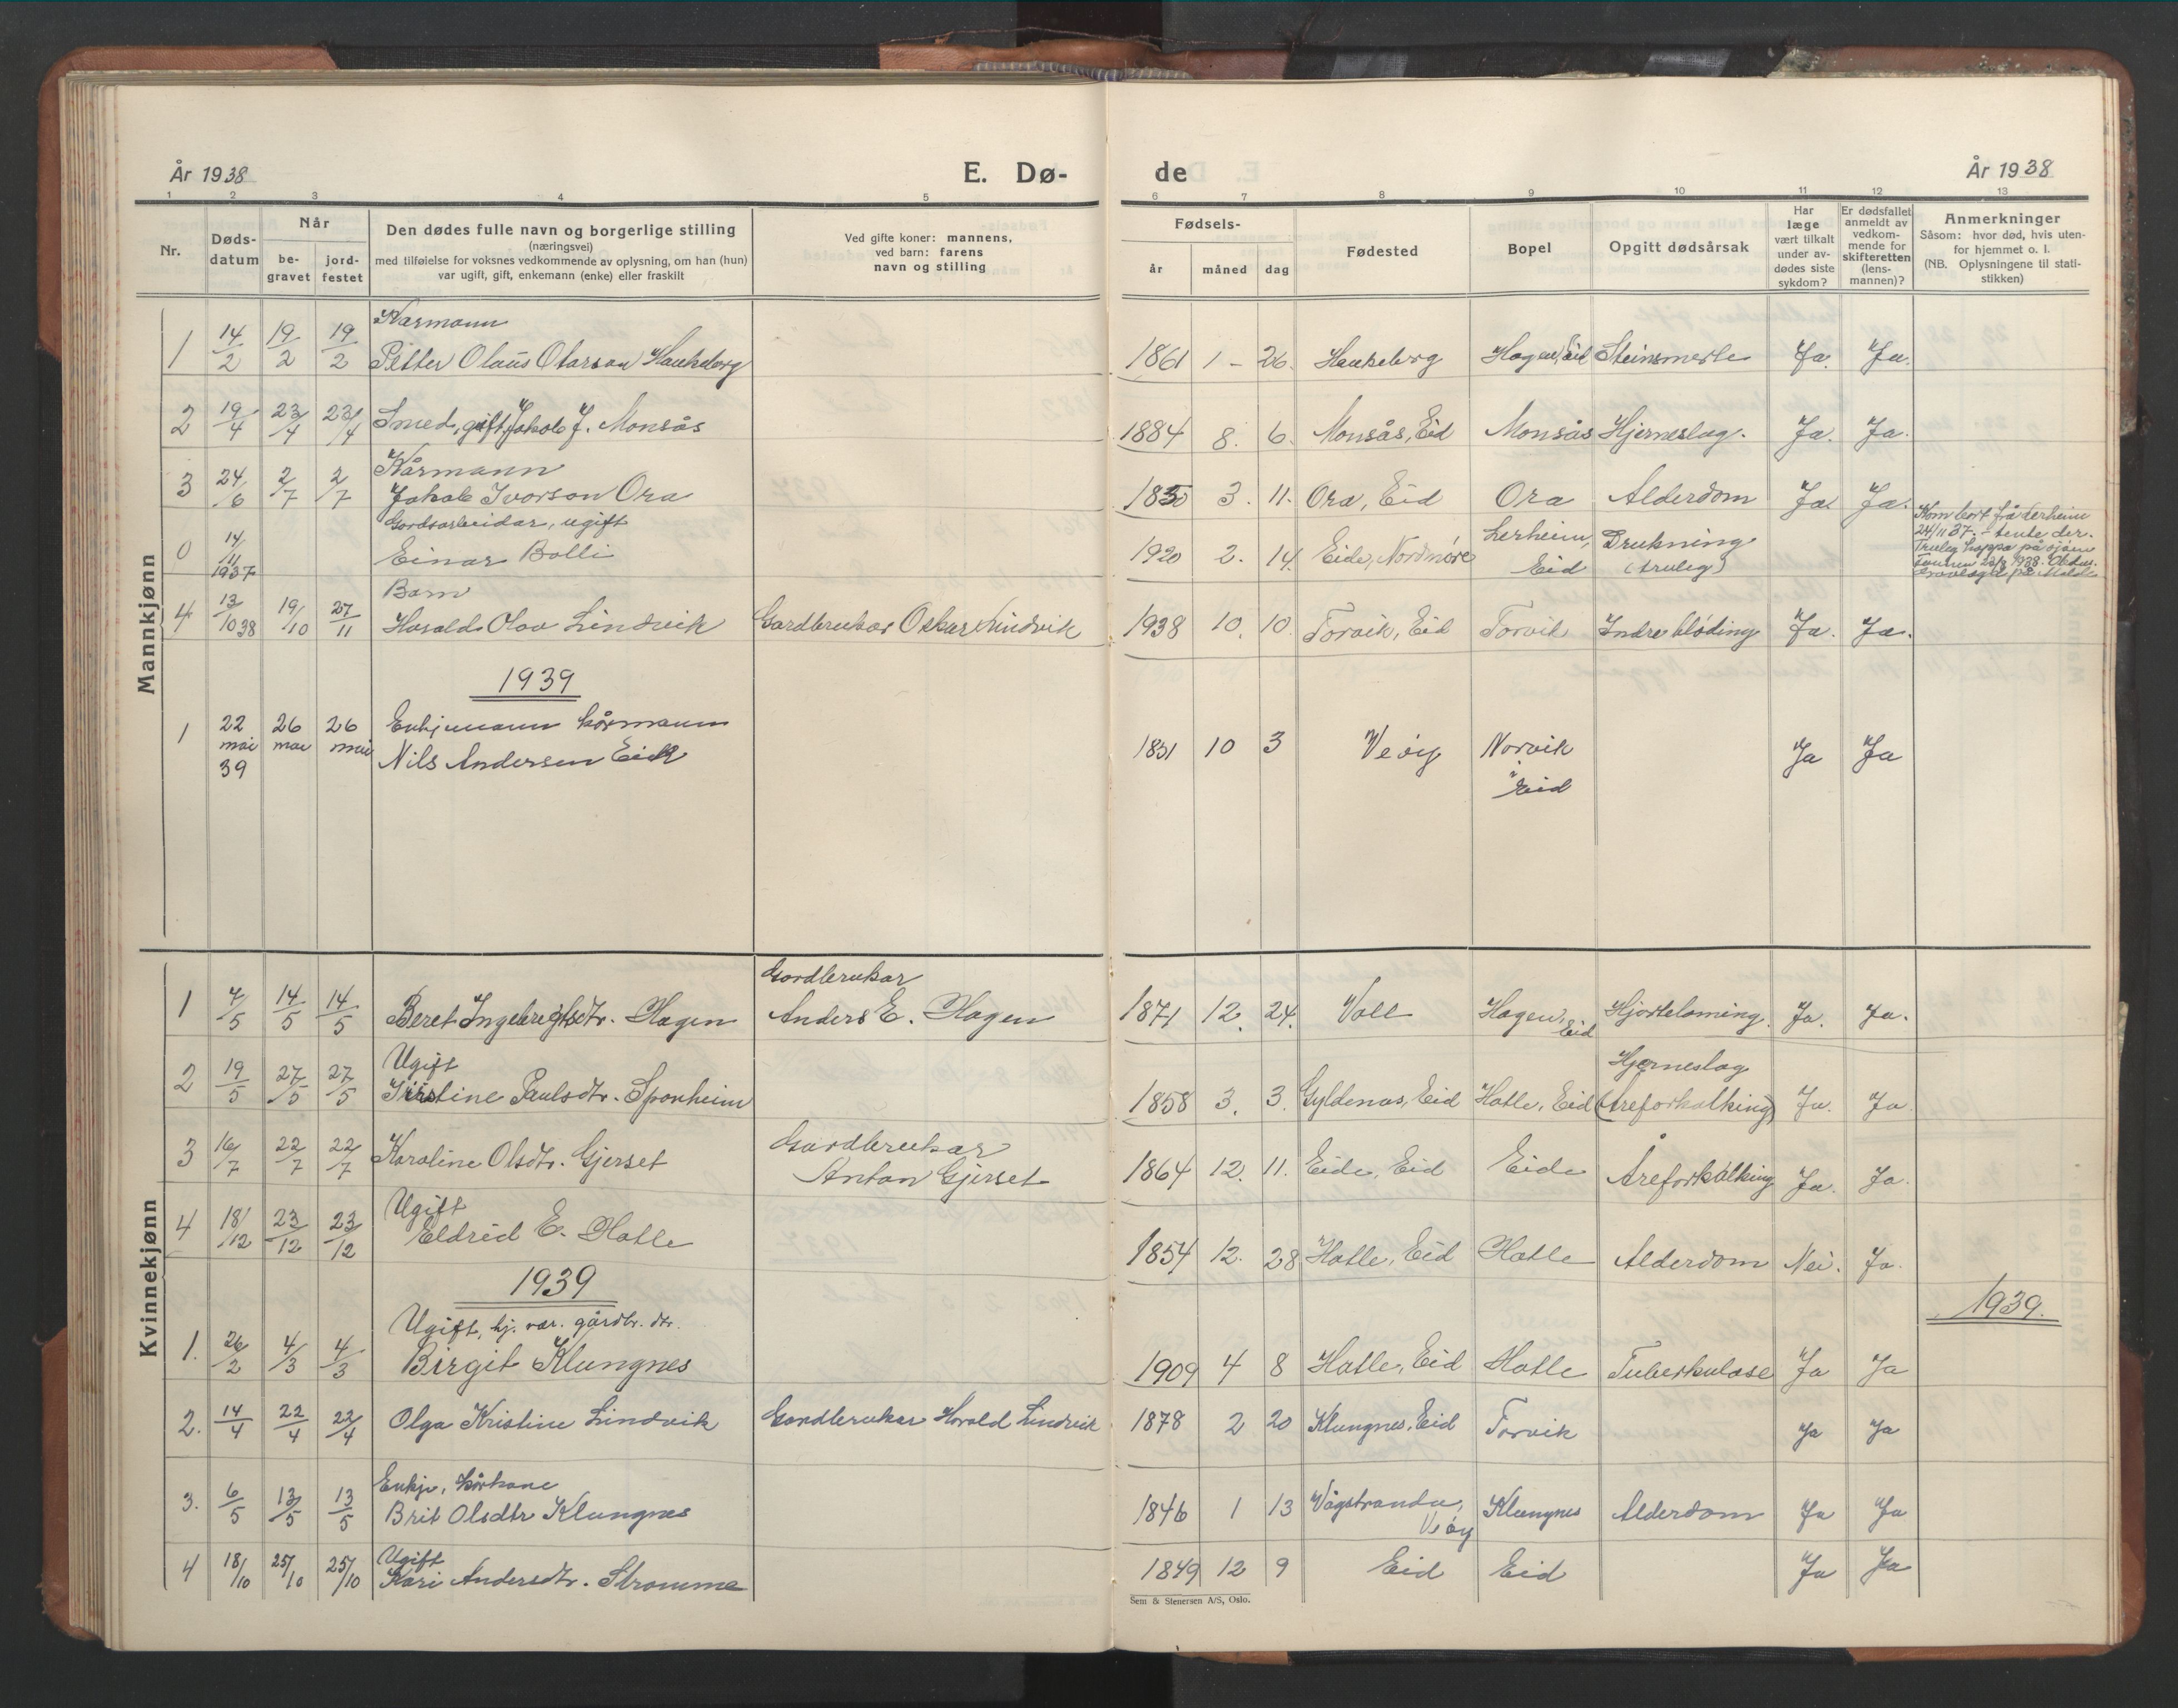 År 1938
E. Dø-
de
År 1938
1 2 3 4 5 6 7 8 9 10 11 12 13
Nr.
Døds-
datum
Når
be-
gravet
jord-
festet
Den dødes fulle navn og borgerlige stilling
(næringsvei)
med tilføielse for voksnes vedkommende av oplysning, om han (hun)
var ugift, gift, enkemann (enke) eller fraskilt
Ved gifte koner: mannens,
ved barn: farens
navn og stilling
Fødsels-
år måned dag
Fødested
Bopel
Opgitt dødsårsak
Har
læge
vært tilkalt
under av-
dødes siste
sykdom?
Er dødsfallet
anmeldt av
vedkom-
mende for
skifteretten
(lens-
mannen)?
Anmerkninger
Såsom: hvor død, hvis uten-
for hjemmet o. l.
(NB. Oplysningene til stati-
stikken)
Mannkjønn
Kårmann
1 14/2 19/2 19/2 Petter Olaus Olarson Haukeberg 1861 1 - 26. Haukeberg Hagen, Eid Steinsmerte Ja. Ja.
2 19/4 23/4 23/4 Smed, gift, Jakob J. Monsås 1884 8. 6. Monsås, Eid Monsås Hjerneslag. Ja. Ja.
Kårmann
3 24/6 2/7 2/7 Jakob Ivorson Ora 1850 3. 11. Ora, Eid Ora Alderdom Ja. Ja.
Gardsarbeidar, ugift
0 14/11 1937 Einar Bolli 1920 2. 14. Eide, Nordmøre Lerheim, Eid Drukning (truleg)
Kom bort frå Lerheim
24/11 37. - tente der.
Truleg hoppa på sjøen
Barn
4 13/10 38 19/10 27/11 Harald Olav Lindvik Gardbrukar Oskar Lindvik 1938 10. 10. Torvik, Eid Torvik Indre bløding Ja. Ja.
1939
1 22 mai 39 26 mai 26 mai Enkjemann kårmann
Nils Andersen Eick 1851 10 3 Veøy Norvik i Eid Ja Ja
Kvinnekjønn
Gardbrukar
1 7/5 14/5 14/5 Beret Ingebrigtsdtr. Hagen Anders E. Hagen 1871 12. 24. Voll Hagen, Eid Hjertelaming. Ja. Ja.
Ugift Hjerneslag
2 19/5 27/5 27/5 Kirstine Paulsdtr. Sponheim 1858 3. 3. Gyldenas, Eid Hatle, Eid (Åreforkalking) Ja. Ja.
3 16/7 22/7 22/7 Karoline Olsdtr. Gjerset Gardbrukar
Anton Gjerset 1864 12. 11. Eide, Eid Eide Åreforkalking Ja. Ja.
Ugift
4 18/12 23/12 23/12 Eldrid E. Hatle 1854 12. 28 Hatle, Eid Hatle Alderdom Nei. Ja.
1939
1939.
Ugift, hj. vær. gårdbr. dtr.
1. 26/2 4/3 4/3 Birgit Klungnes 1909 4 8 Hatle, Eid Hatle Tuberkulose Ja Ja
2. 14/4 22/4 22/4 Olga Kristine Lindvik Gardbrukar Harald Lindvik 1878 2 20 Klungnes, Eid Torvik Ja Ja
Enkje, kårkone
3. 6/5 13/5 13/5 Brit Olsdtr Klungnes 1846 1 13 Vågstranda, Veøy Klungnes Alderdom Ja Ja
Ugift
4 18/10 25/10 25/10 Kari Andersdtr. Stromme 1849 12 9 Eid Eid Ja Ja
Sem & Stenersen A/S, Oslo.